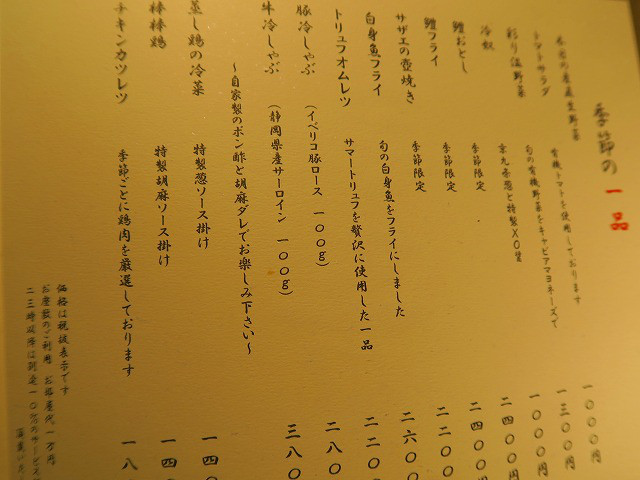 季節の一品
産直生野菜 一〇〇〇円
トマトサラダ 有機トマトを使用しております 一三〇〇円
彩り温野菜 旬の有機野菜をキャビアマヨネーズで 一〇〇〇円
冷奴 京九条葱と特製XO醤
鱧おとし 季節限定 二四〇〇円
鱧フライ 季節限定 二四〇〇円
サザエの壺焼き 季節限定 二二〇〇
白身魚フライ 旬の白身魚をフライにしました 二六〇〇
トリュフオムレツ サマートリュフを贅沢に使用した一品 二二〇〇
豚冷しゃぶ (イベリコ豚ロース 一〇〇g) 二八〇
牛冷しゃぶ (静岡県産サーロイン 一〇〇g) 三八〇
~自家製のポン酢と胡麻ダレでお楽しみ下さい~
蒸し鶏の冷菜 特製葱ソース掛け 一四〇
棒棒鶏 特製胡麻ソース掛け 一四〇
チキンカツレツ 季節ごとに鶏肉を厳選しております 一八
価格は税抜表示です
お座敷のご利用 お部屋代一万円
二三時以降は別途一〇%のサービス